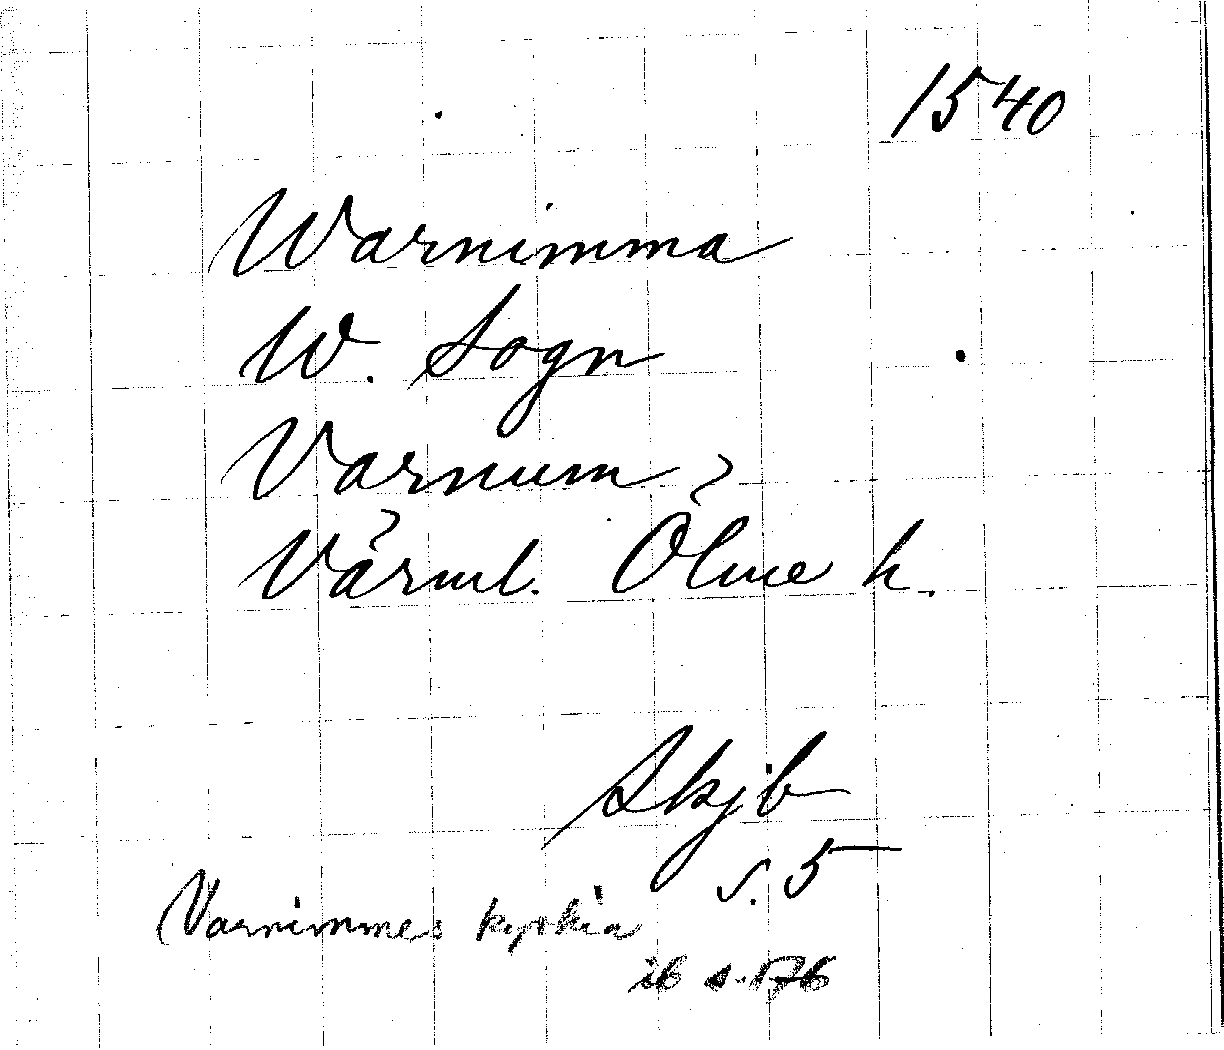 1540
Warnimma
W. Sogn
Varnum
Värml. Ölme h.
Skjb
s. 5
(Varnimmes kyrkia
ib s. 176